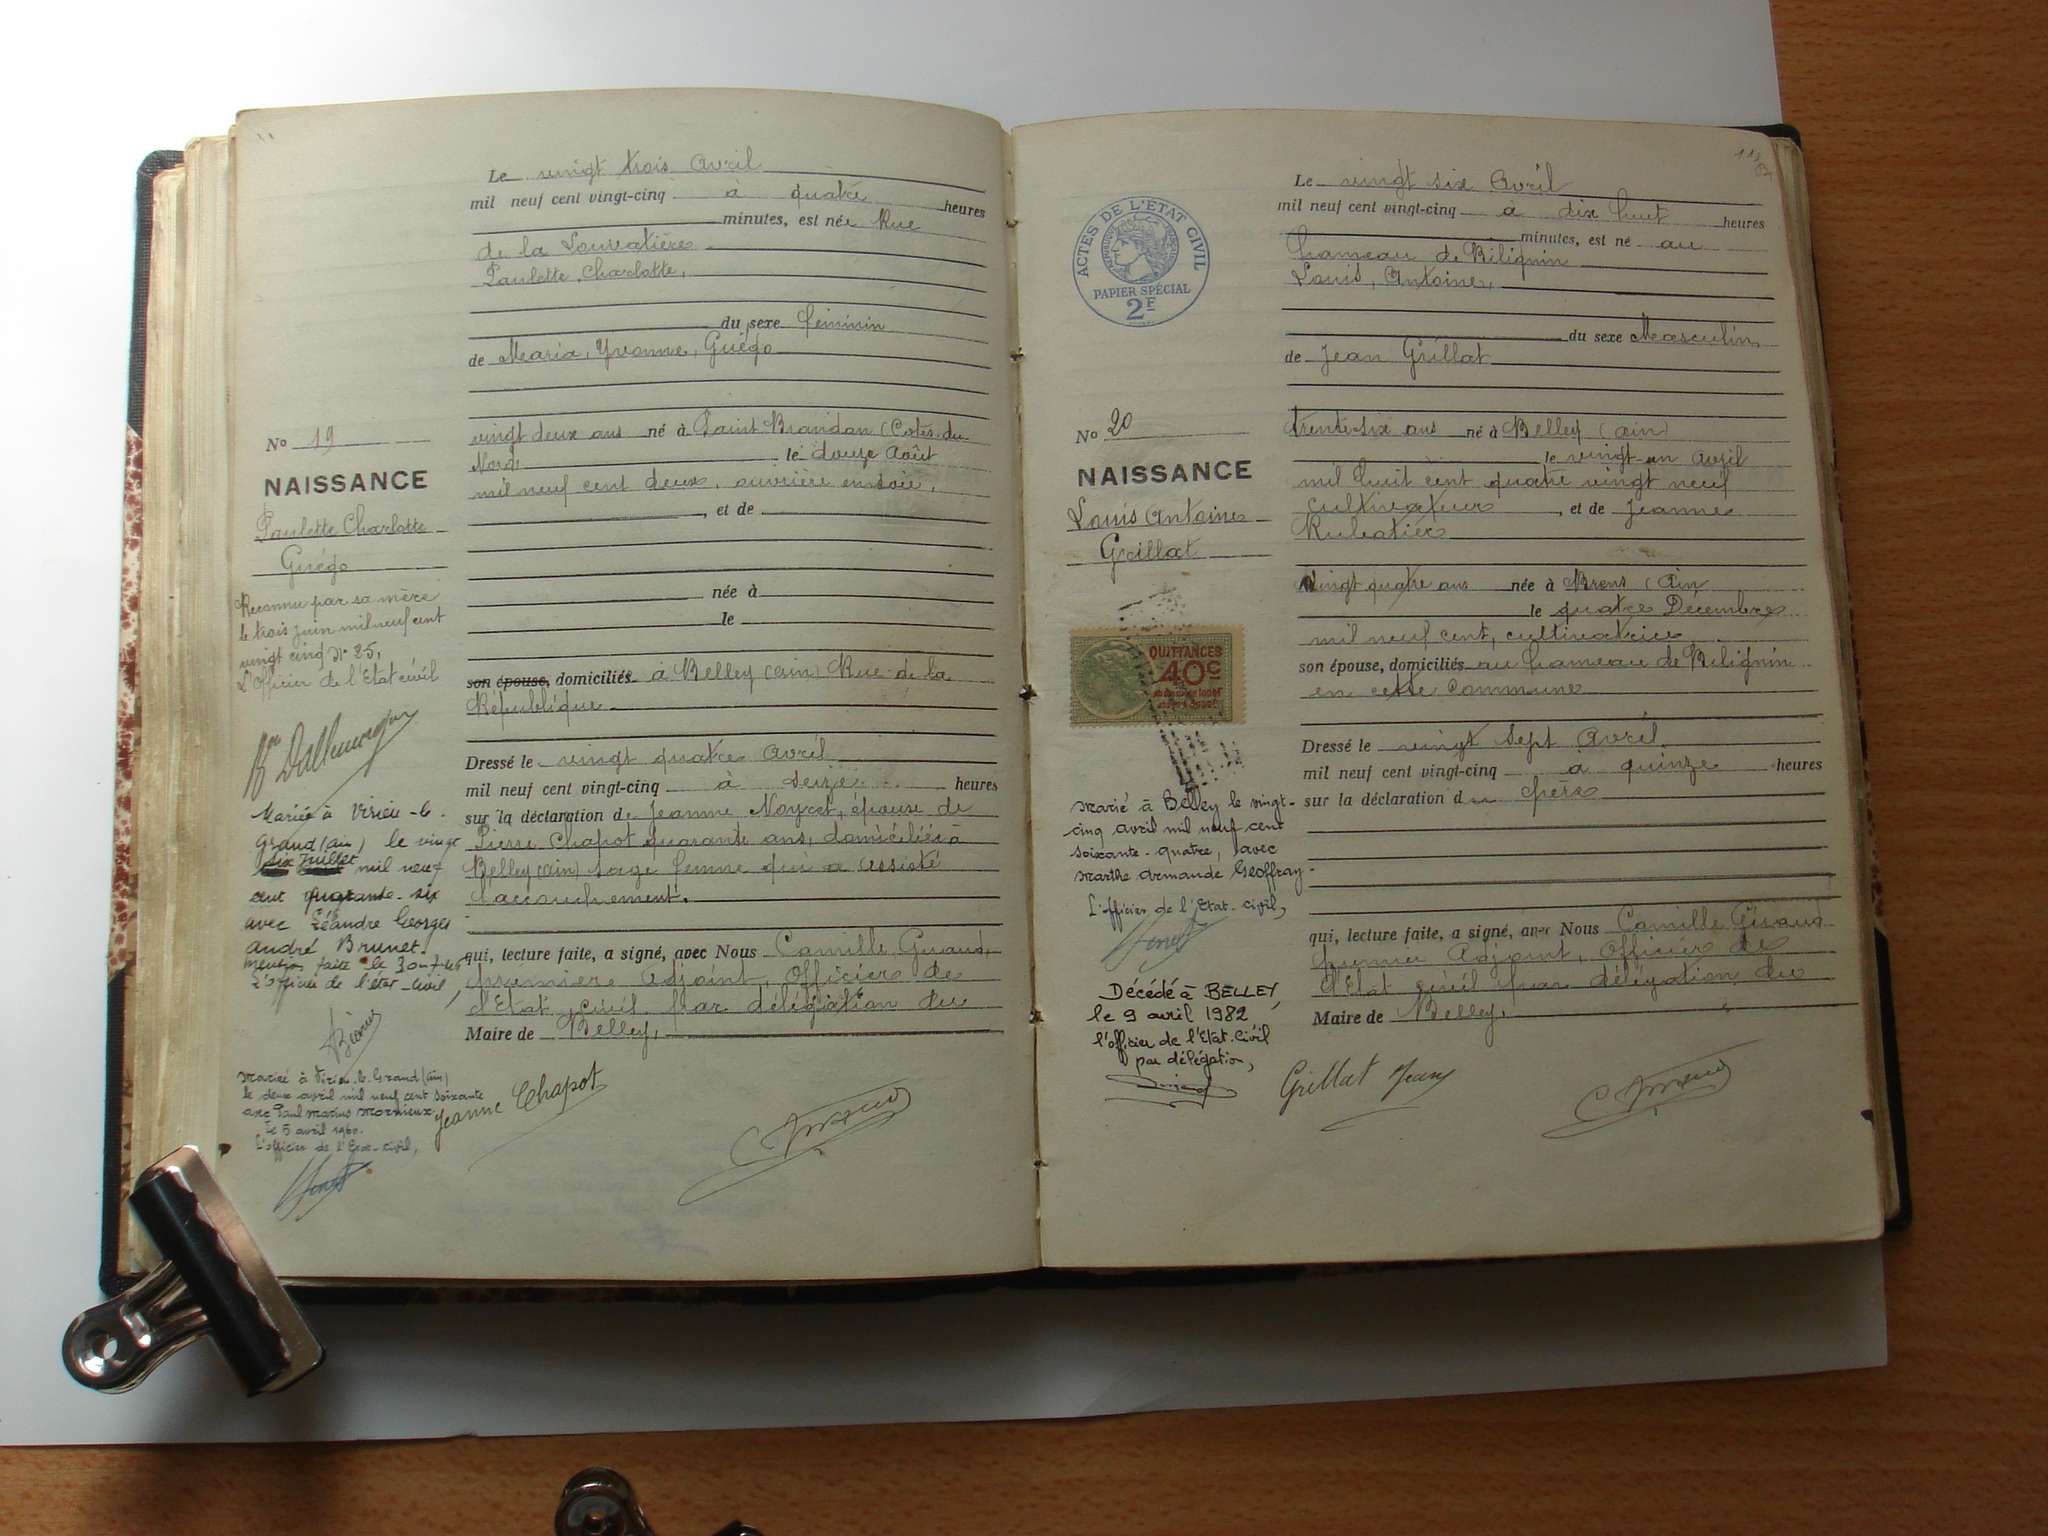 Le vingt trois Avril
mil neuf cent vingt-cinq à quatre heures
minutes, est née Rue
de la
Paulette, Charlotte,
du sexe féminin
de Maria, Yvonne, Guégo
No 19
NAISSANCE
Paulette Charlotte
Guégo
Reconnue par sa mère
le trois juin mil neuf cent
vingt cinq No 25,
L'Officier de l'Etat civil
Mariée à Virieu-le-
Grand (Ain) le vingt
six Juillet mil neuf
cent quarante-six
avec Léandre Georges
André Brunet.
mention faite le 30-7-46
L'officier de l'état-civil,
Mariée à Virieu-le-Grand (Ain)
le deux avril mil neuf cent soixante
avec Paul Marius
le 5 avril 1960.
L'officier de l'Etat-civil,
vingt deux ans né à Saint Brandan (Cotes-du-
Nord) le douze Août
mil neuf cent deux, ouvrière en soie,
et de
née à
le
son épouse, domiciliés à Belley (Ain) Rue de la
République
Dressé le vingt quatre Avril
mil neuf cent vingt-cinq à seize heures
sur la déclaration de Jeanne Noyret, épouse de
Pierre Chapot quarante ans, domiciliée à
Belley (Ain) sage femme qui a assisté
l'accouchement.
qui, lecture faite, a signé, avec Nous Camille Giraud,
premier Adjoint, Officier de
l'Etat civil par délégation du
Maire de Belley,
Jeanne Chapot
11
ACTES DE L'ETAT CIVIL
PAPIER SPÉCIAL
2F
Le vingt six Avril
mil neuf cent vingt-cinq à dix huit heures
minutes, est né au
hameau de Bilignin
Louis, Antoine,
du sexe Masculin
de Jean Grillat
No 20
NAISSANCE
Louis Antoine
Grillat
QUITTANCES
40c
Marié à Belley le vingt-
cinq avril mil neuf cent
soixante-quatre, avec
Marthe Armande Geoffray.
L'officier de l'Etat-civil,
Décédé à BELLEY,
le 9 avril 1982
l'officier de l'Etat-Civil
par délégation,
trente-six ans né à Belley (Ain)
le vingt-un avril
mil huit cent quatre vingt neuf
cultivateur, et de Jeanne
Rubatier
Vingt quatre ans née à Brens (Ain
le quatre Décembre
mil neuf cent, cultivatrice
son épouse, domiciliés au hameau de Bilignin
en cette commune
Dressé le vingt sept Avril
mil neuf cent vingt-cinq à quinze heures
sur la déclaration du père
qui, lecture faite, a signé, avec Nous Camille Giraud
premier Adjoint, Officier de
l'Etat civil par délégation du
Maire de Belley,
Grillat Jean